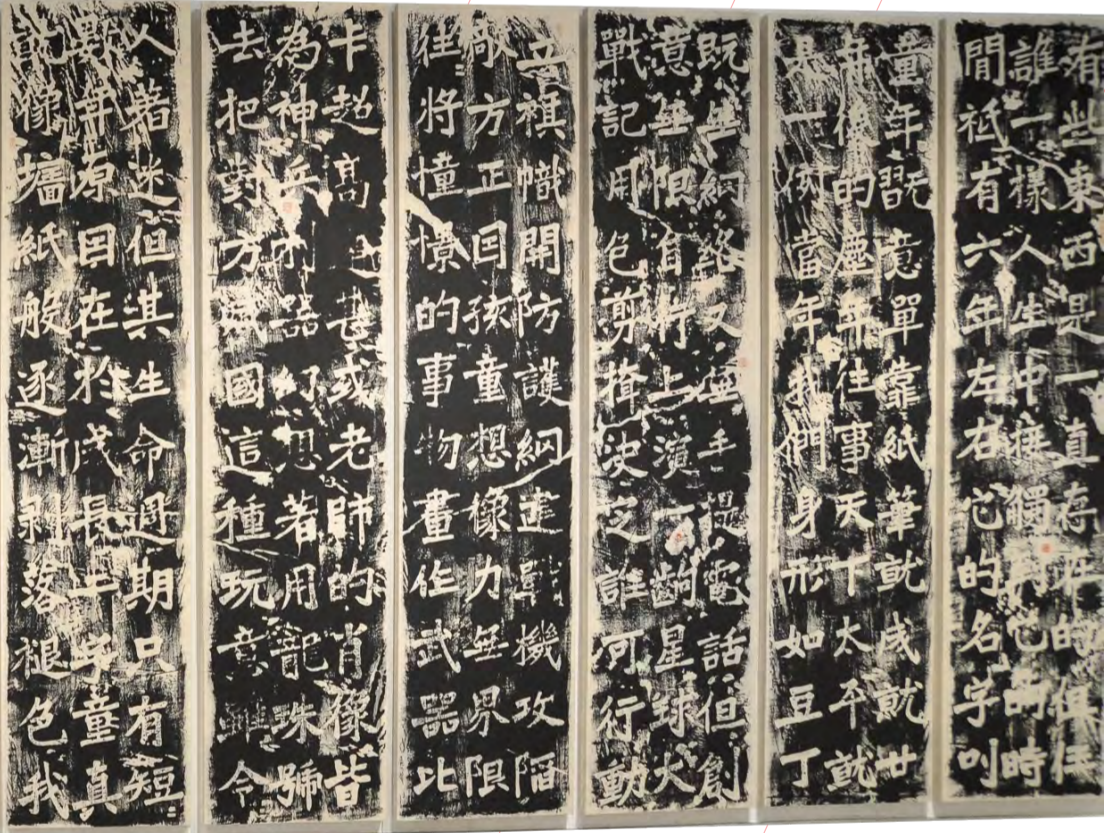 有些東西是一直存在的但任
誰一樣人生中接觸到它的時
間衹有六年左右它的名字叫
童年翫意單靠紙筆就成就世
後的塵年往事天下太平就
是一例當年我們身形如豆丁
既無網絡又無手提電話但創
意無限自行上演一齣星球大
戰記用包剪揼決定誰可行動
立旗幟開防護網建戰機攻陷
敵方正因孩童想像力無界限
往將憧憬的事物畫作武器比
卡超高達甚或老師的肖像皆
為神兵利器幻想著用龍珠號
去把對方滅國這種玩意雖令
人著迷但其生命週期只有短
數年原因在於成長中童真
就像墻紙般逐漸剥落褪色我